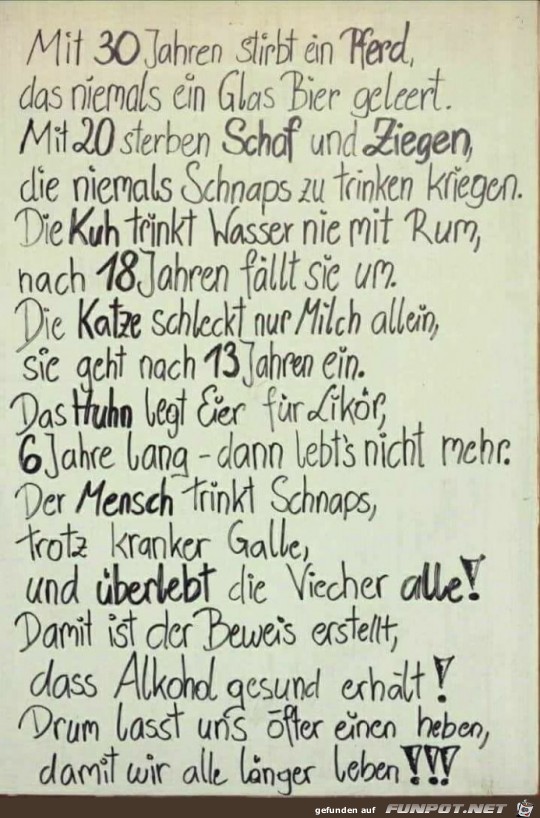 Mit 30 Jahren stirbt ein Pferd,
das niemals ein Glas Bier geleert.
Mit 20 sterben Schaf und Ziegen,
die niemals Schnaps zu trinken kriegen.
Die Kuh trinkt Wasser nie mit Rum,
nach 18 Jahren fällt sie um.
Die Katze schleckt nur Milch allein,
sie geht nach 13 Jahren ein.
Das Huhn legt Eier für Likör,
6 Jahre lang - dann lebt's nicht mehr.
Der Mensch trinkt Schnaps,
trotz kranker Galle,
und überlebt die Viecher alle!
Damit ist der Beweis erstellt,
dass Alkohol gesund erhält!
Drum lasst uns öfter einen heben,
damit wir alle länger leben!!!
gefunden auf FUNPOT.NET